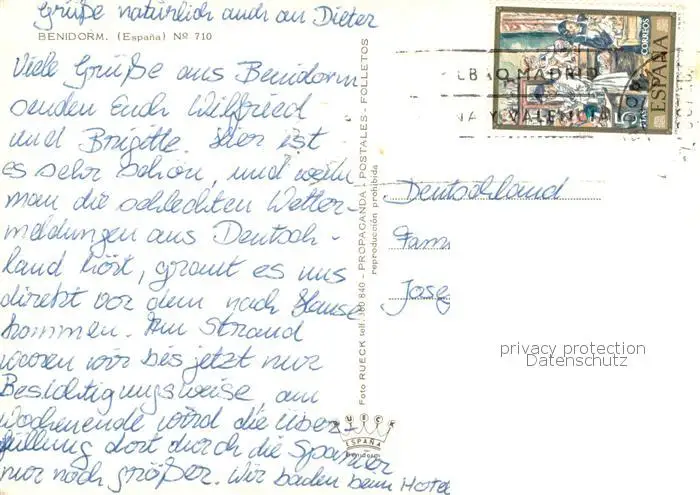 Grüße natürlich auch an Dieter
BENIDORM. (España) Nº 710
Viele Grüße aus Benidorm
senden Euch Wilfried
und Brigitte. Hier ist
es sehr schön, und wenn
man die schlechten Wetter-
meldungen aus Deutsch-
land hört, graut es uns
direkt vor dem nach Hause
kommen. Am Strand
waren wir bis jetzt nur
Besichtigungsweise, am
Wochenende wird die Über-
füllung dort durch die Spanier
nur noch größer. Wir baden beim Hotel
Foto RUECK telf. 380 840 - PROPAGANDA - POSTALES - FOLLETOS
reproducción prohibida
RUECK
ESPAÑA
Benidorm
CORREOS
ESPAÑA
LBAO, MADRID
NA Y VALENCIA
Deutschland
Fami
Josef
privacy protection
Datenschutz